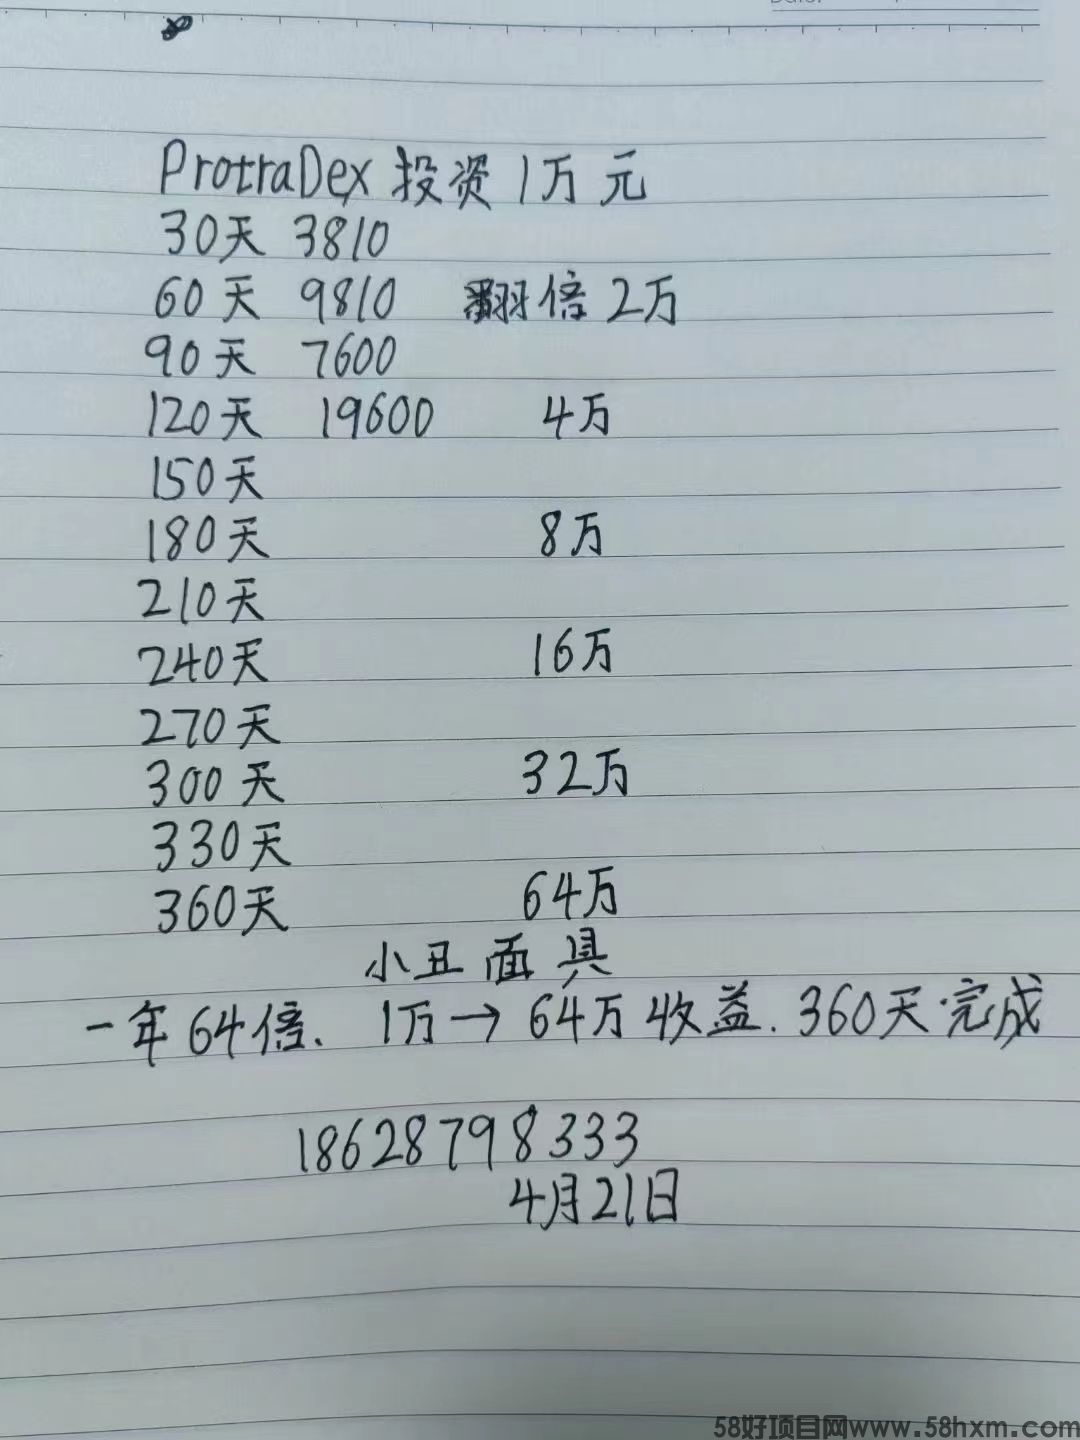 ProtraDex 投资1万元
30天 3810
60天 9810 翻倍2万
90天 7600
120天 19600 4万
150天
180天 8万
210天
240天 16万
270天
300天 32万
330天
360天 64万
小丑面具
一年64倍、1万→64万收益.360天完成
18628798333
4月21日
58好项目网www.58hxm.com